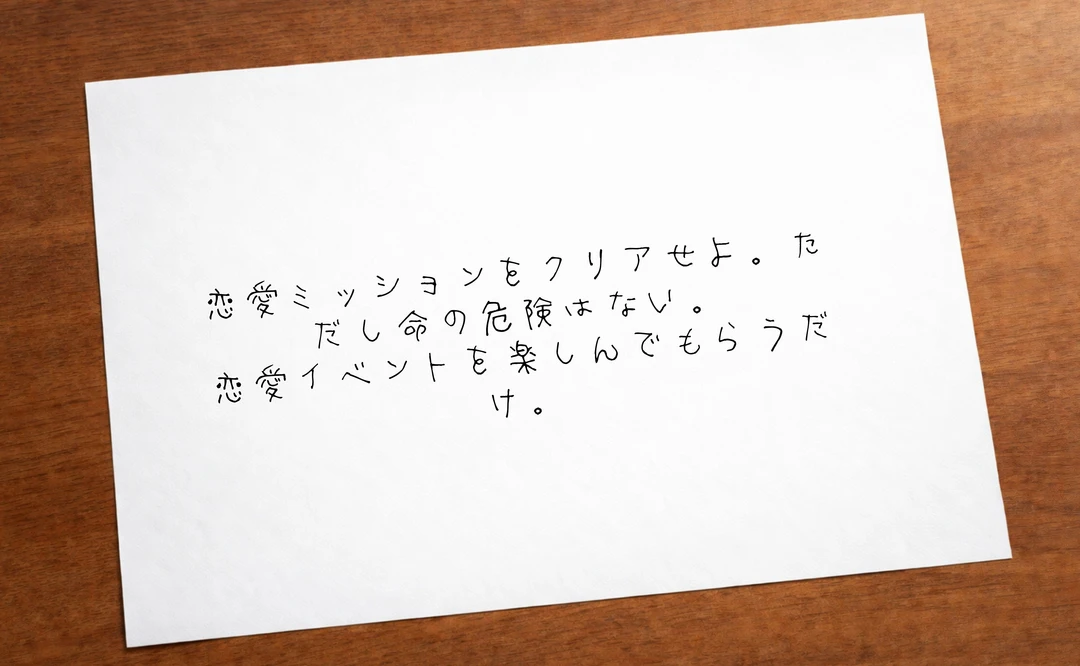 恋愛ミッションをクリアせよ。た
だし命の危険はない。
恋愛イベントを楽しんでもらうだ
け。